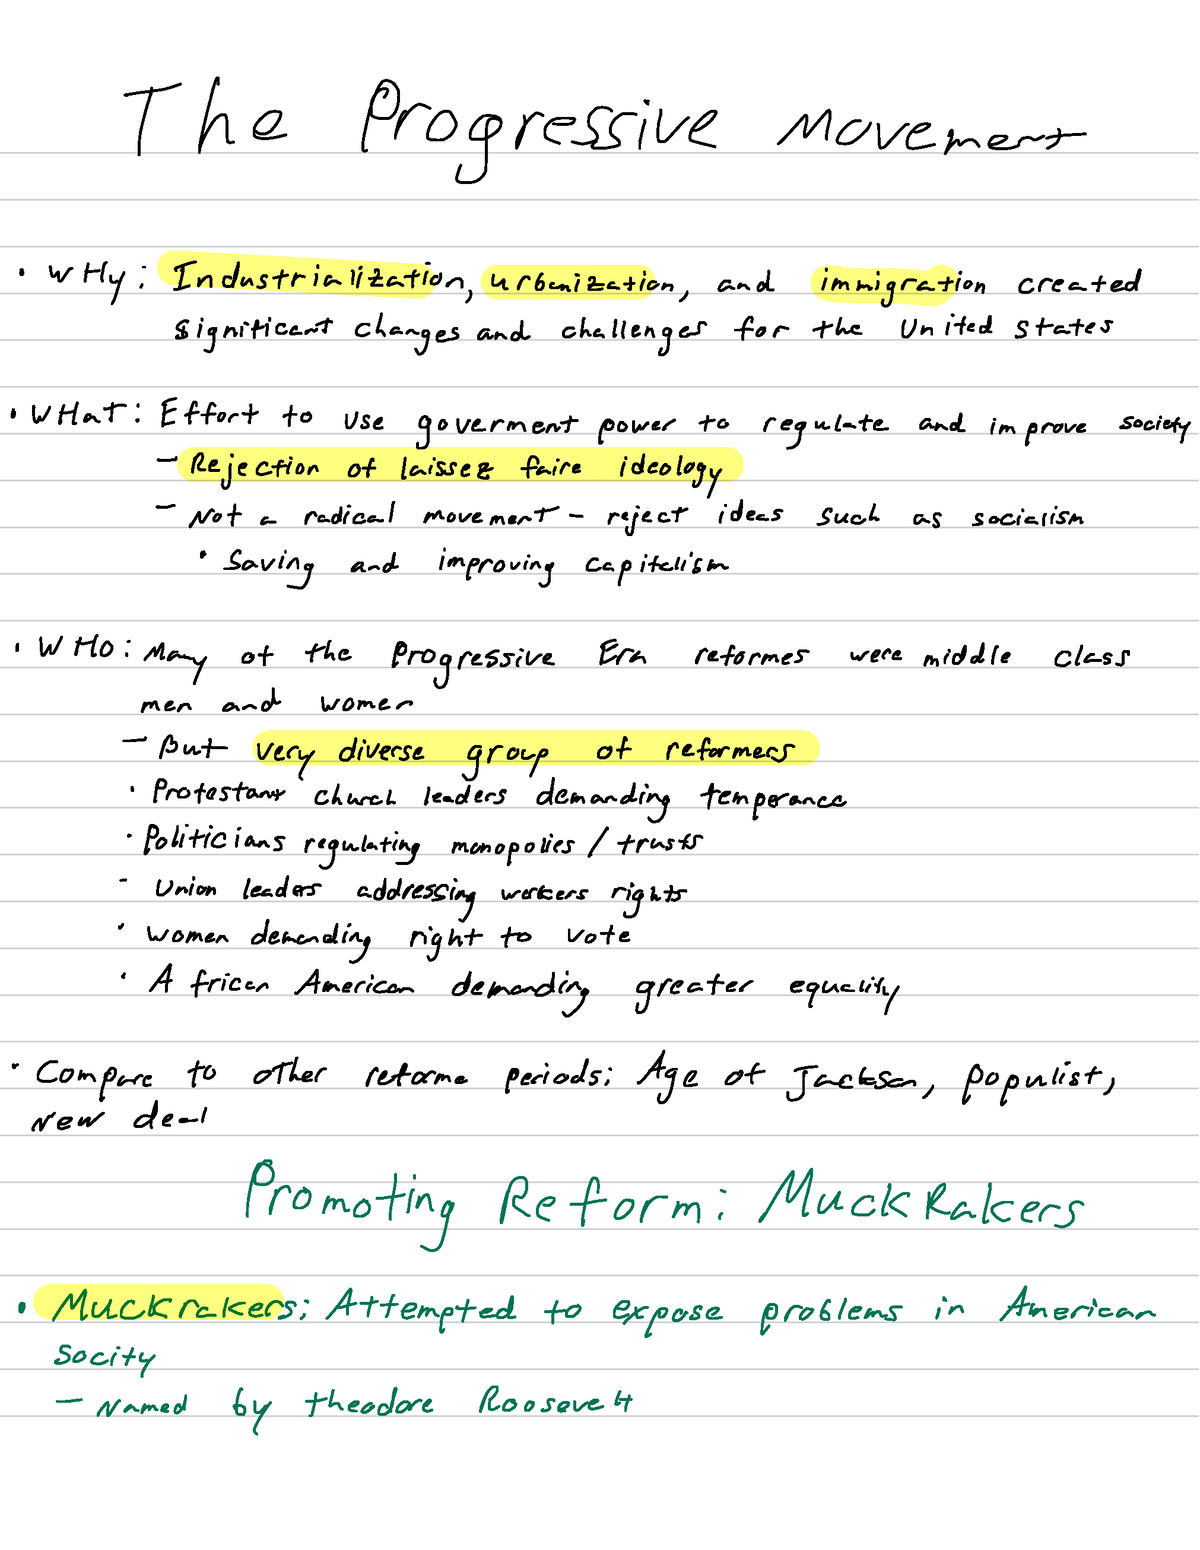 The Progressive Movement
• WHy: Industrialization, urbanization, and immigration created
significant changes and challenges for the United States
• WHaT: Effort to use goverment power to regulate and improve society
– Rejection of laissez faire ideology
– Not a radical movement – reject ideas such as socialism
• Saving and improving capitalism
• WHO: Many of the Progressive Era reformes were middle class
men and women
– But very diverse group of reformers
• Protestant church leaders demanding temperance
• Politicians regulating monopolies / trusts
- Union leaders addressing workers rights
• Women demanding right to vote
• African American demanding greater equality
• Compare to other reforme periods: Age of Jackson, populist,
New deal
Promoting Reform: MuckRakers
• Muckrakers: Attempted to expose problems in American
socity
– Named by theodore Roosevelt